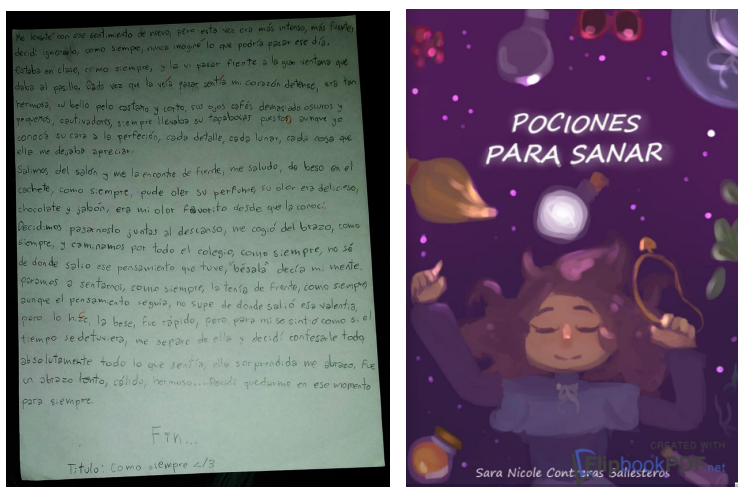 Me levante con ese sentimiento de nuevo, pero esta vez era más intenso, más fuerte,
decidí ignorarlo, como siempre, nunca imaginé lo que podría pasar ese día.
Estaba en clase, como siempre, y la vi pasar frente a la gran ventana que
daba al pasillo. Cada vez que la veía pasar sentía mi corazón detense, era tan
hermosa, su bello pelo castaño y corto, sus ojos cafés demasiado oscuros y
pequeños, cautivadores, siempre llevaba su tapabocas puesto, aunque yo
conocía su cara a la perfeción, cada detalle, cada lunar, cada cosa que
ella me dejaba apreciar.
Salimos del salón y me la encontre de frente, me saludo, de beso en el
cachete, como siempre, pude oler su perfume, su olor era delicioso,
chocolate y jabón, era mi olor favorito desde que la conocí.
Decidimos pasarnoslo juntas al descanso, me cogió del brazo, como
siempre, y caminamos por todo el colegio, como siempre, no sé
de donde salio ese pensamiento que tuve, "bésala" decía mi mente.
paramos a sentarnos, como siempre, la tenía de frente, como siempre,
aunque el pensamiento seguía, no supe de donde salió esa valentía,
pero lo hice, la bese, fue rápido, pero para mi se sintió como si el
tiempo se detuviera, me separe de ella y decidí contesarle todo,
absolutamente todo lo que sentía, ella sorprendida me abrazo, fue
un abrazo lento, cálido, hermoso... Decidí quedarme en ese momento
para siempre.
Fin...
Titulo: Como siempre <13
POCIONES
PARA SANAR
CREATED WITH
FlipbookPDF.net
Sara Nicole Contreras Ballesteros